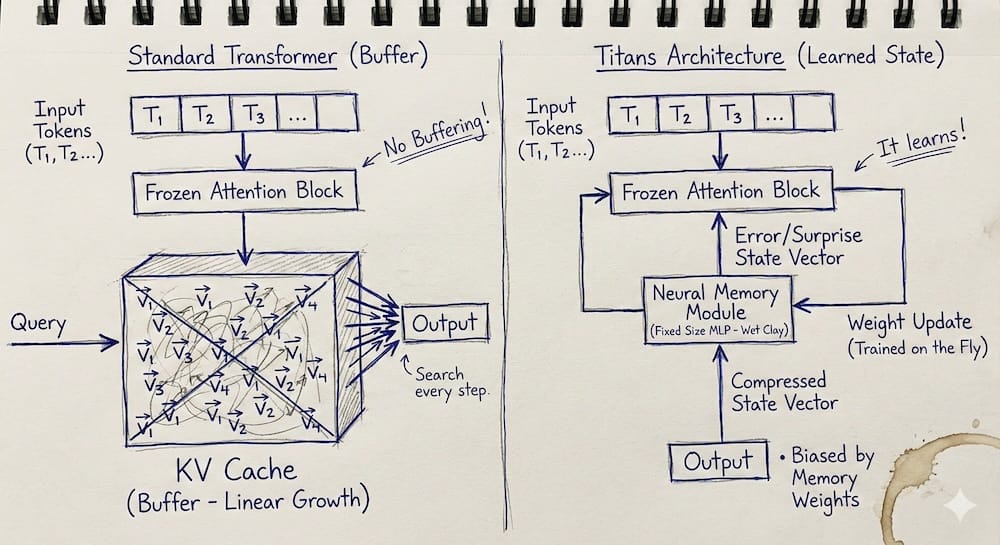 Standard Transformer (Buffer)
Input
Tokens
(T₁, T₂...)
T₁ T₂ T₃ ...
No Buffering!
Frozen Attention Block
Query
V⃗₁ V⃗₁ V⃗₂ V⃗₄
V⃗₂ V⃗₂ V⃗₁
V⃗₁ V⃗₃ V⃗₁ V⃗₁
V⃗₃ V⃗₄ V⃗₁ V⃗₂ V⃗₄
V⃗₁ V⃗₁ V⃗₂ V⃗₂ V⃗₄
Output
Search
every step.
KV Cache
(Buffer - Linear Growth)
Titans Architecture (Learned State)
Input
Tokens
(T₁, T₂...)
T₁ T₂ T₃ ...
It learns!
Frozen Attention Block
Error/Surprise
State Vector
Neural Memory
Module
(Fixed Size MLP - Wet Clay)
Weight Update
(Trained on the Fly)
Compressed
State Vector
Output
• Biased by
Memory
Weights